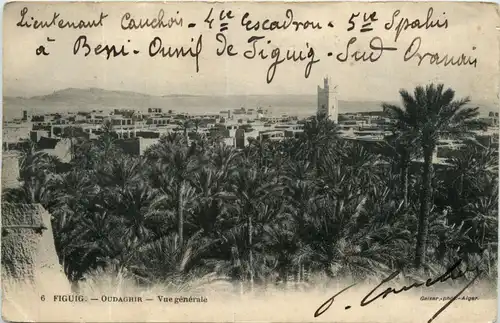 Lieutenant Cauchois - 4ème Escadron - 5ème Spahis
à Beni-Ounif de Figuig - Sud Oranais
6 FIGUIG. — OUDAGHIR — Vue générale
P. Cauchois
Geiser.-phot.-Alger.